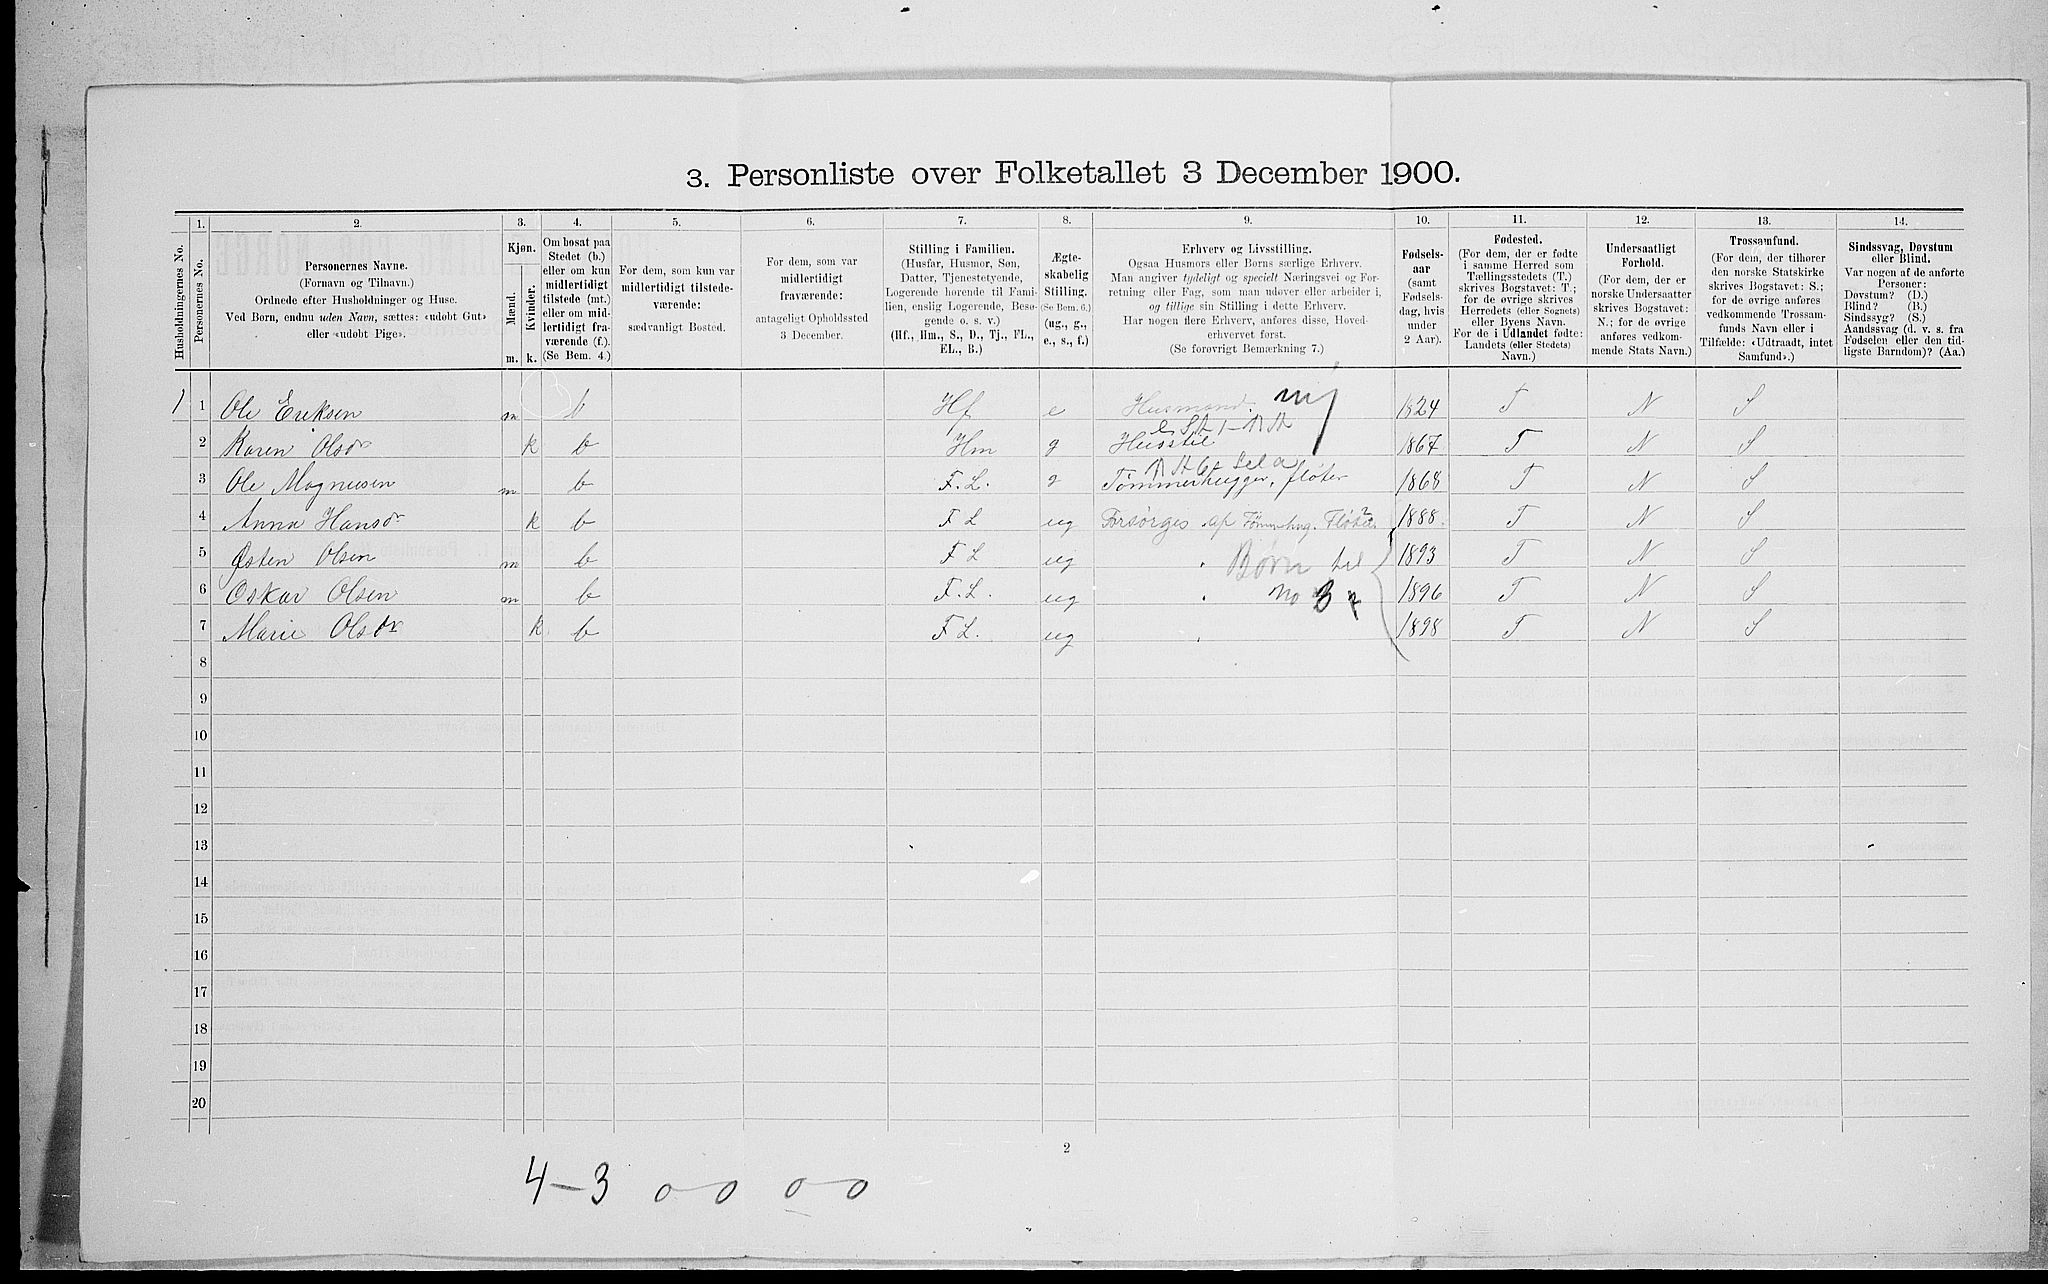 3. Personliste over Folketallet 3 December 1900.
Husholdningernes No.
1. Personernes No.
2. Personernes Navne.
(Fornavn og Tilnavn.)
Ordnede efter Husholdninger og Huse.
Ved Børn, endnu uden Navn, sættes: «udøbt Gut»
eller «udøbt Pige».
3. Kjøn.
Mænd. m.
Kvinder. k.
4. Om bosat paa
Stedet (b.)
eller om kun
midlertidigt
tilstede (mt.)
eller om mid-
lertidigt fra-
værende (f.)
(Se Bem. 4.)
5. For dem, som kun var
midlertidigt tilstede-
værende:
sædvanligt Bosted.
6. For dem, som var
midlertidigt
fraværende:
antageligt Opholdssted
3 December.
7. Stilling i Familien.
(Husfar, Husmor, Søn,
Datter, Tjenestetyende,
Logerende hørende til Fami-
lien, enslig Logerende, Besø-
gende o. s. v.)
(Hf., Hm., S., D., Tj., FL.,
EL., B.)
8. Ægte-
skabelig
Stilling.
(Se Bem. 6.)
(ug., g.,
e., s., f.)
9. Erhverv og Livsstilling.
Ogsaa Husmors eller Børns særlige Erhverv.
Man angiver tydeligt og specielt Næringsvei og For-
retning eller Fag, som man udøver eller arbeider i,
og tillige sin Stilling i dette Erhverv.
Har nogen flere Erhverv, anføres disse, Hoved-
erhvervet først.
(Se forøvrigt Bemærkning 7.)
10. Fødsels-
aar
(samt
Fødsels-
dag, hvis
under
2 Aar).
11. Fødested.
(For dem, der er fødte
i samme Herred som
Tællingsstedets (T.)
skrives Bogstavet: T.;
for de øvrige skrives
Herredets (eller Sognets)
eller Byens Navn.
For de i Udlandet fødte:
Landets (eller Stedets)
Navn.)
12. Undersaatligt
Forhold.
(For dem, der er
norske Undersaatter
skrives Bogstavet:
N.; for de øvrige
anføres vedkom-
mende Stats Navn.)
13. Trossamfund.
(For dem, der tilhører
den norske Statskirke
skrives Bogstavet: S.;
for de øvrige anføres
vedkommende Trossam-
funds Navn eller i
Tilfælde: «Udtraadt, intet
Samfund».)
14. Sindssvag, Døvstum
eller Blind.
Var nogen af de anførte
Personer:
Døvstum? (D.)
Blind? (B.)
Sindssyg? (S.)
Aandssvag (d. v. s. fra
Fødselen eller den tid-
ligste Barndom)? (Aa.)
1 1 Ole Eriksen m b Hf e Husmand. 1824 T N S
2 Karen Olsdr k b Hm g Husstel 1867 T N S
3 Ole Magnusen m b F.L. g Tømmerhugger, fløter 1868 T N S
4 Anna Hansdr k b F L ug Forsørges af Tømmerhug. Fløter 1888 T N S
5 Østen Olsen m b F L ug Børn til 1893 T N S
6 Oskar Olsen m b F.L. ug No 3 1896 T N S
7 Marie Olsdr k b F L. ug 1898 T N S
8
9
10
11
12
13
14
15
16
17
18
19
20
2
4-3 0 0 0 0